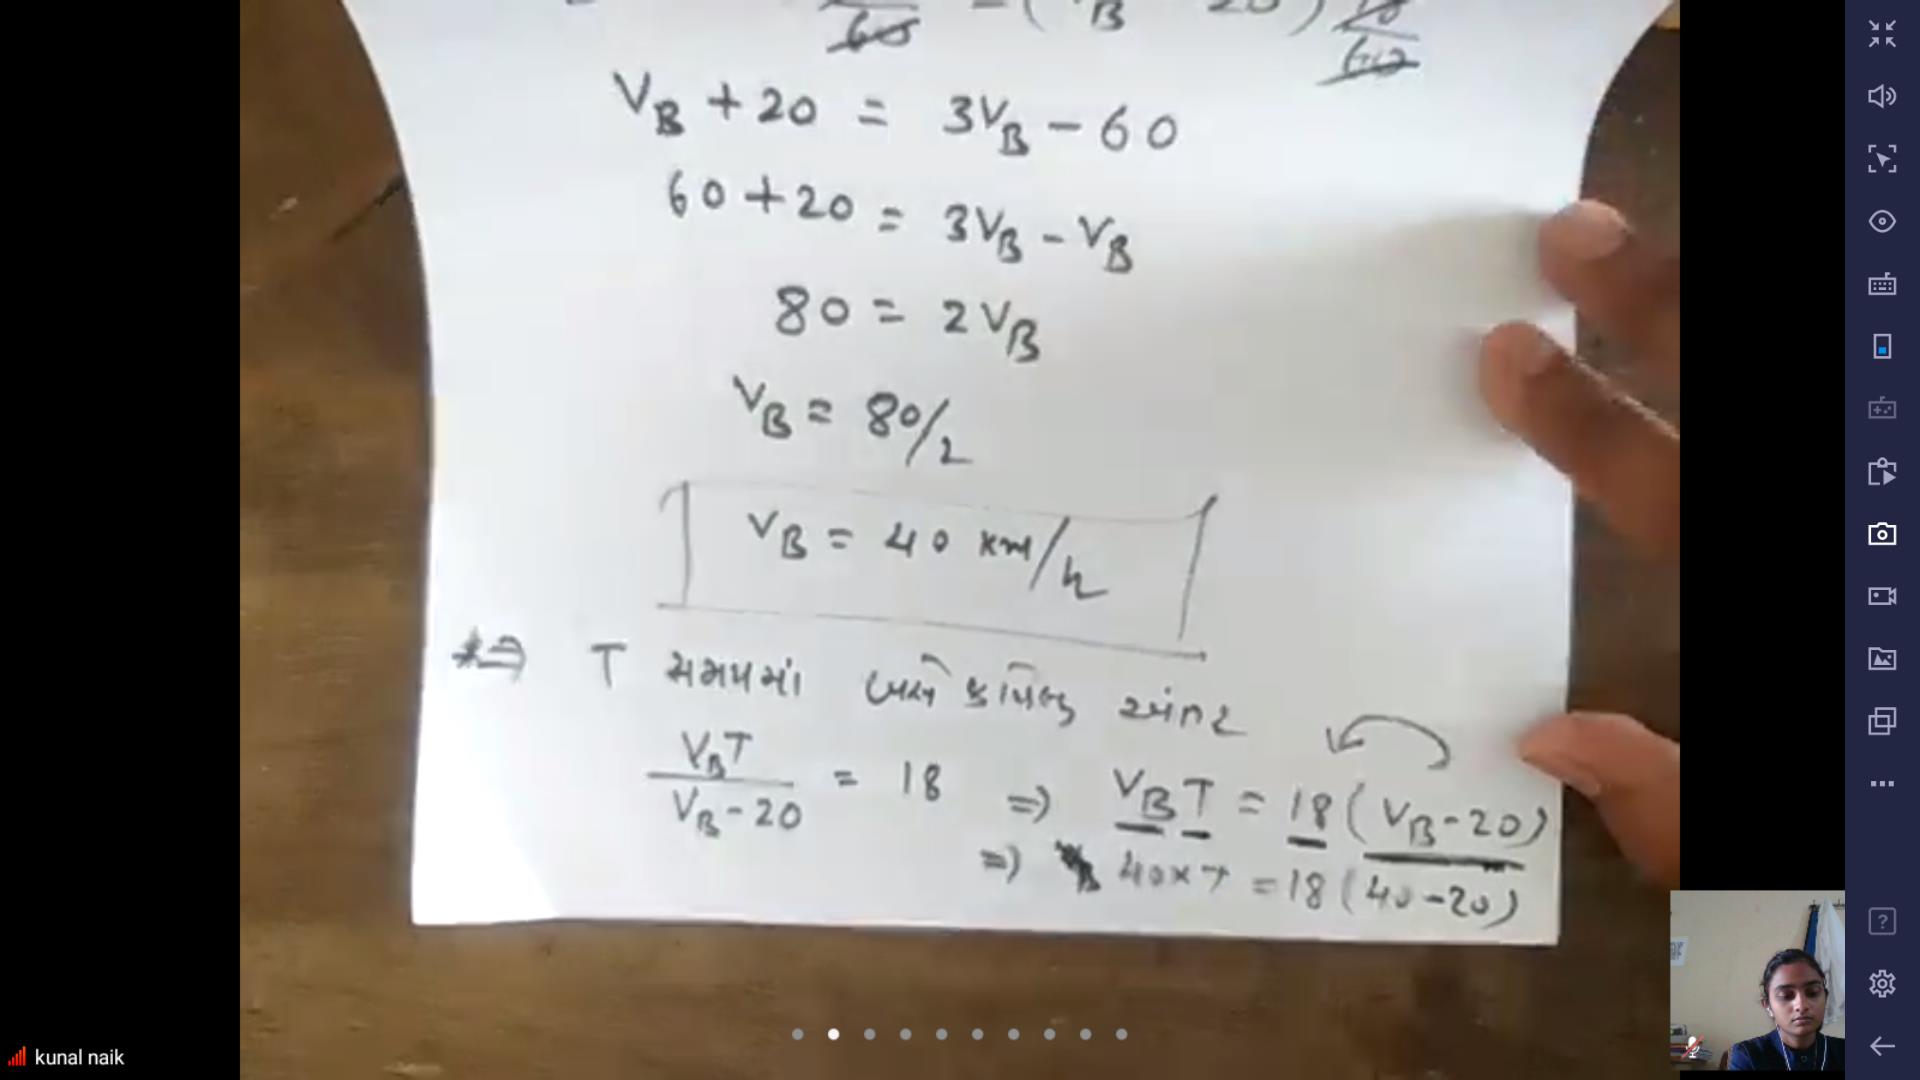 60 = (VB - 20) 10/60
VB + 20 = 3VB - 60
60 + 20 = 3VB - VB
80 = 2VB
VB = 80/2
VB = 40 km/h
⇒ T સમયમાં બસે કાપેલુ અંતર
VBT / VB - 20 = 18 ⇒ VBT = 18(VB - 20)
⇒ 40 × T = 18(40 - 20)
kunal naik